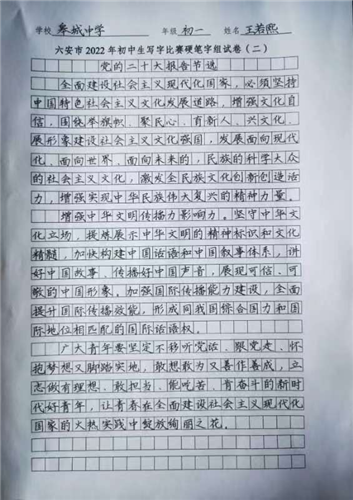 学校 皋城中学 年级 初一 姓名 王若熙
六安市2022年初中生写字比赛硬笔字组试卷（二）
党的二十大报告节选
全面建设社会主义现代化国家，必须坚持
中国特色社会主义文化发展道路，增强文化自
信，围绕举旗帜、聚民心、育新人、兴文化、
展形象建设社会主义文化强国，发展面向现代
化、面向世界、面向未来的，民族的科学大众
的社会主义文化，激发全民族文化创新创造活
力，增强实现中华民族伟大复兴的精神力量。
增强中华文明传播力影响力。坚守中华文
化立场，提炼展示中华文明的精神标识和文化
精髓，加快构建中国话语和中国叙事体系，讲
好中国故事、传播好中国声音，展现可信、可
敬的中国形象。加强国际传播能力建设，全面
提升国际传播效能，形成同我国综合国力和国
际地位相匹配的国际话语权。
广大青年要坚定不移听党话、跟党走、怀
抱梦想又脚踏实地，敢想敢为又善作善成，立
志做有理想、敢担当、能吃苦、肯奋斗的新时
代好青年，让青春在全面建设社会主义现代化
国家的火热实践中绽放绚丽之花。